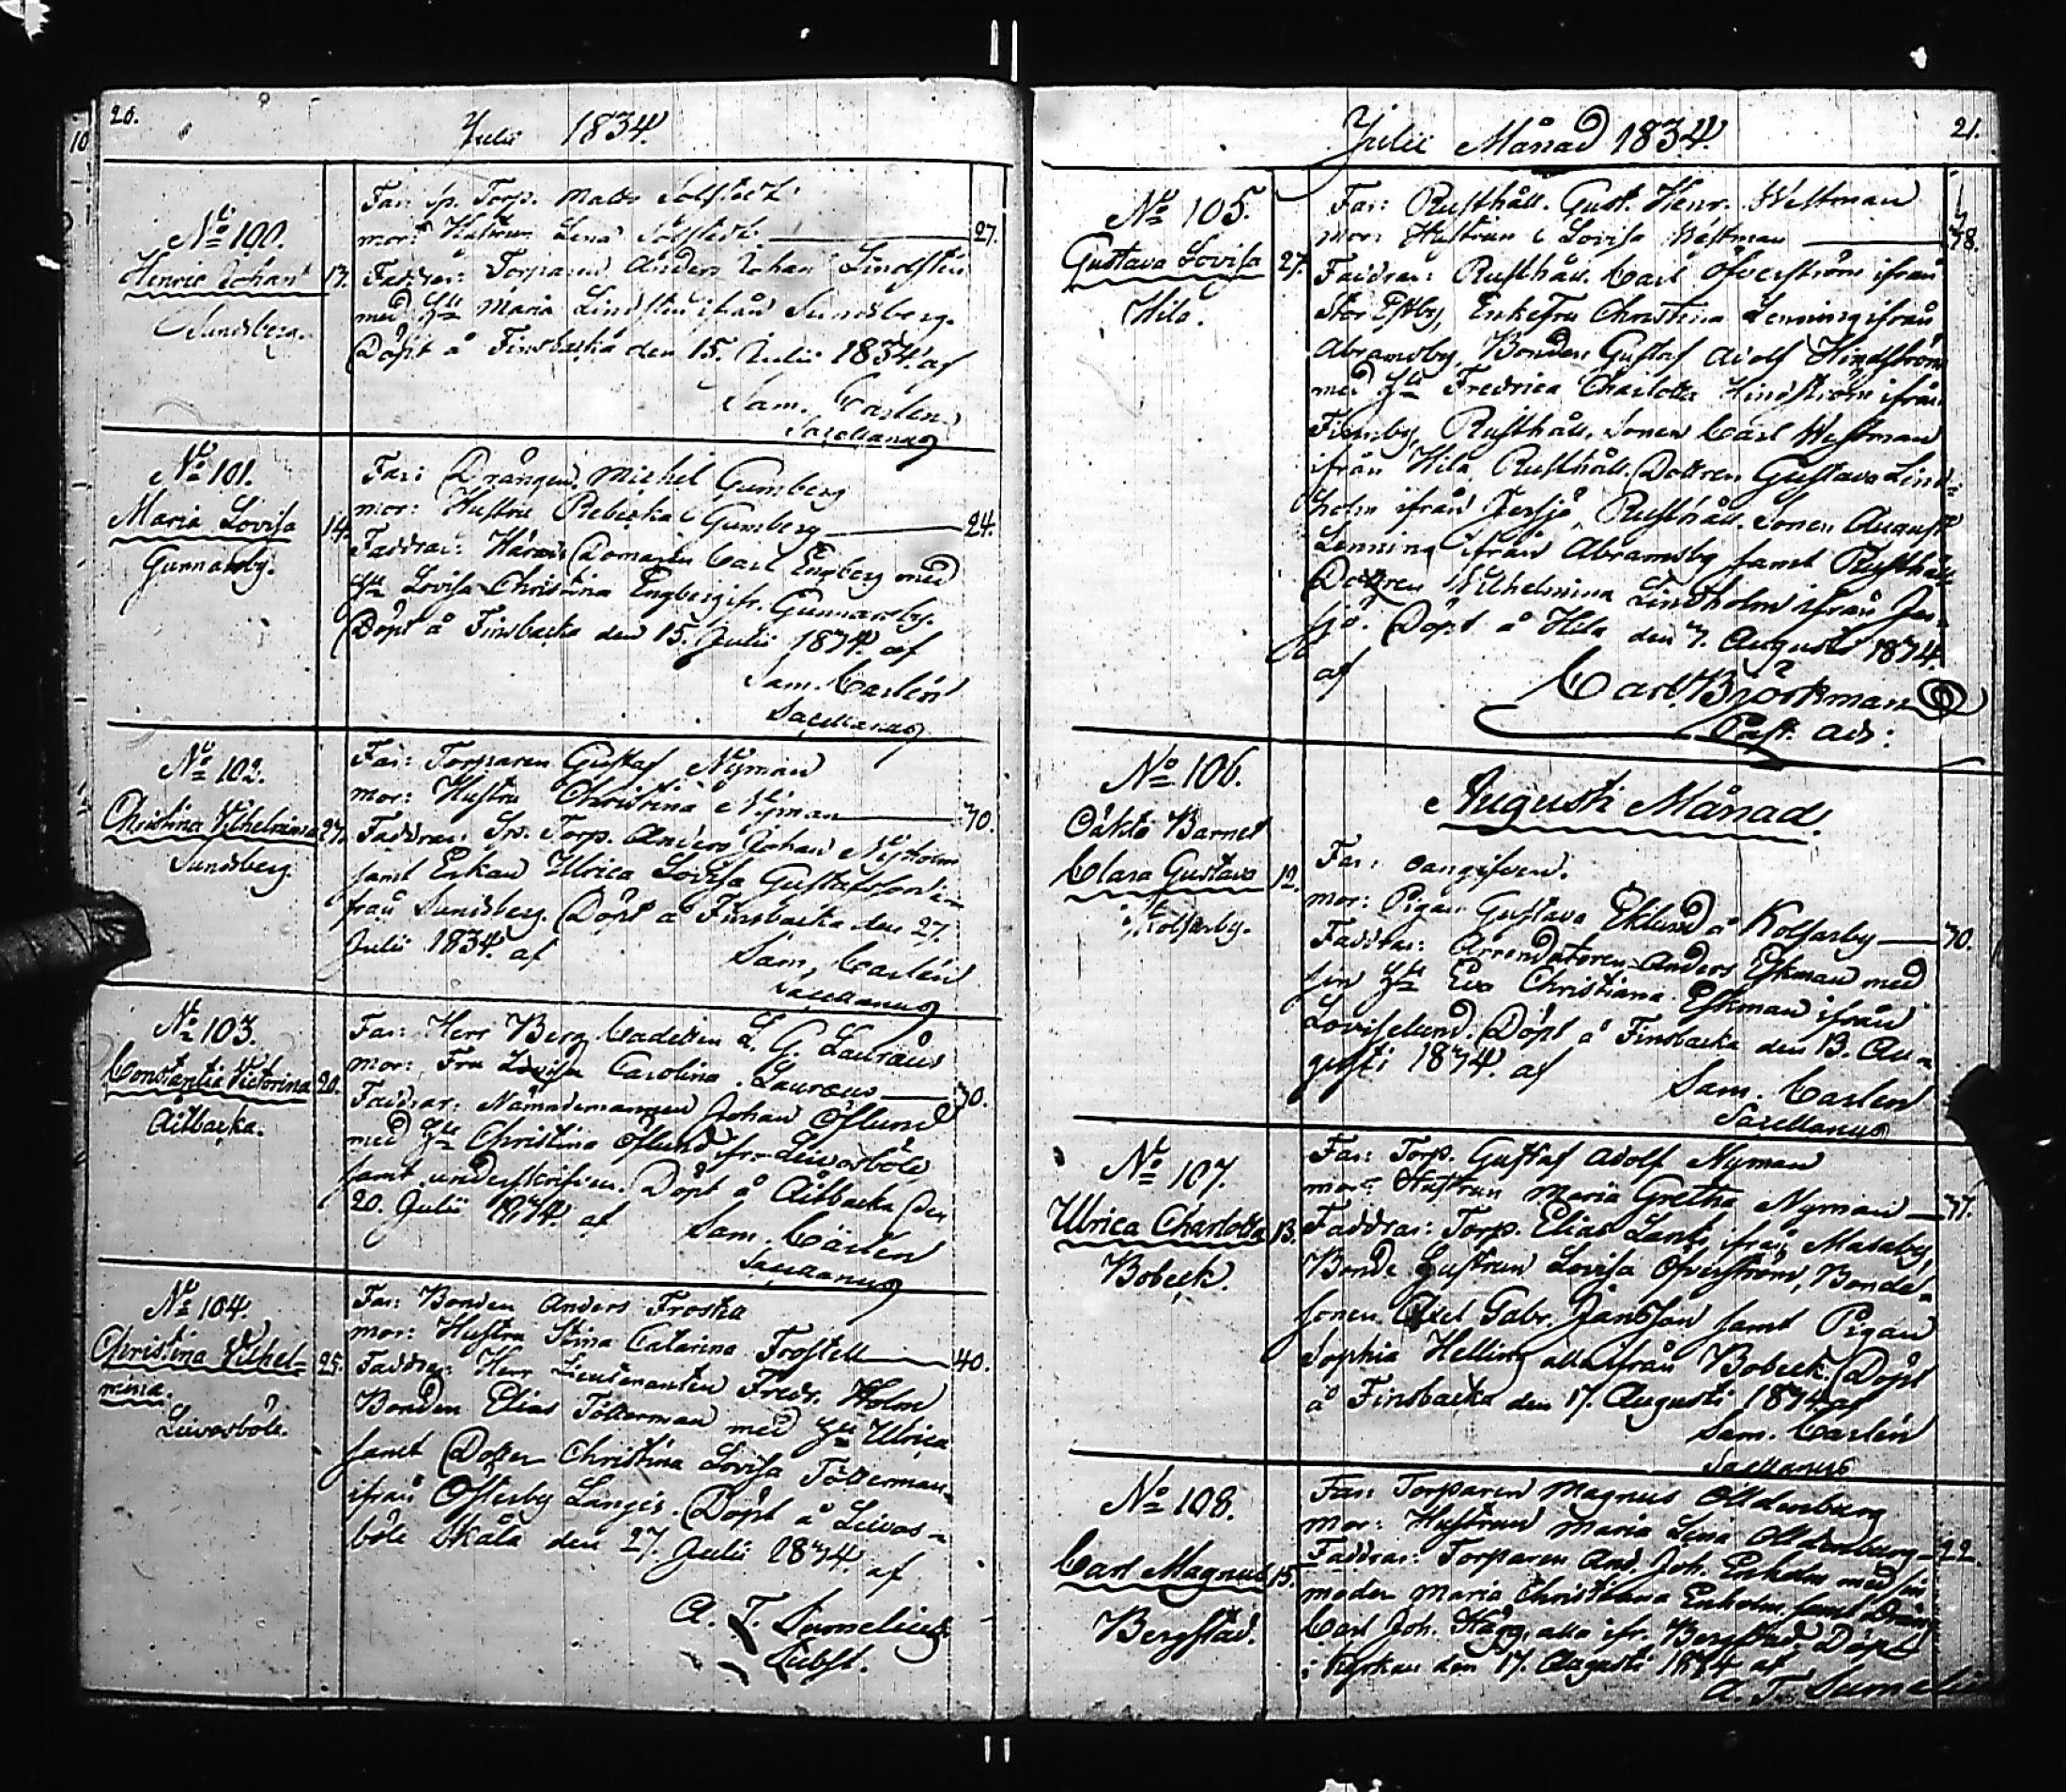 20.
Julii 1834.
No 100.
Henric Johan 13.
Sundsberg.
Far: Sp. Torp. Matts Solstedt
mor: Hustrun Lena Solstedt 27.
Faddrar: Torparen Anders Johan Lindsten
med Hu Maria Lindsten ifrån Sundsberg.
Döpt å Finsbacka den 15. Julii 1834. af
Sam. Carlén
Sacellanus
No 101.
Maria Lovisa 14.
Gunnarsby.
Far: Drängen Michel Gumberg
mor: Hustru Rebecka Gumberg 24.
Faddrar: Härads Domaren Carl Engberg med
Hu Lovisa Christina Engberg ifr. Gunnarsby.
Döpt å Finsbacka den 15. Julii 1834. af
Sam. Carlén
Sacellanus
No 102.
Christina Vilhelmina 27.
Sundsberg.
Far: Torparen Gustaf Nyman
mor: Hustru Christina Nyman 30.
Faddrar: Sp. Torp. Anders Johan Nyholm
samt Enkan Ulrica Lovisa Gustafsson i-
från Sundsberg. Döpt å Finsbacka den 27.
Julii 1834. af
Sam. Carlén
Sacellanus
No 103.
Constantia Victorina 20.
Aitbacka.
Far: Herr Berg Cadetten L. G. Lauræus
mor: Fru Lovisa Carolina Lauræus 30.
Faddrar: Nämndemannen Johan Öflund
med Hu Christina Öflund fr. Leivosböle,
samt underskrifven. Döpt å Aitbacka den
20. Julii 1834. af
Sam. Carlén
Sacellanus
No 104.
Christina Vilhel- 25.
mina.
Leivosböle.
Far: Bonden Anders Froska
mor: Hustru Stina Catarina Frostell 40.
Faddrar: Herr Lieutenanten Fredr. Holm
Bonden Elias Tötterman med Hu Ulrica
samt Dotter Christina Lovisa Tötterman
ifrån Österby Länges. Döpt å Leivos-
böle Skåla den 27. Julii 1834. af
A. T. Sumelius
Subst.
21.
Julii Månad 1834.
No 105.
Gustava Lovisa 27.
Hila.
Far: Rusthåll. Gust. Henr. Westman
mor: Hustrun Lovisa Westman 38.
Faddrar: Rusthåll. Carl Öfverström ifrån
Stor Estby, Enkefru Christina Lenning ifrån
Abramsby, Bonden Gustaf Adolf Hindström
med Hu Fredrica Charlotta Hindström ifrån
Finnby, Rusthåll. Sonen Carl Westman
ifrån Hila, Rusthåll. Dottren Gustava Lind-
holm ifrån Jersjö, Rusthåll. Sonen August
Lenning ifrån Abramsby samt Rusthåll.
Dottren Wilhelmina Lindholm ifrån Jer-
sjö. Döpt å Hila den 7. Augusti 1834.
af
Carl Björkman
Past. adj:
No 106.
Oäkta Barnet
Clara Gustava 12.
Kolsarby.
Augusti Månad.
Far: oangifven.
mor: Pigan Gustava Eklund å Kolsarby 30.
Faddrar: Arrendatoren Anders Eskman med
sin Hu Eva Christiana Eskman ifrån
Loviselund. Döpt å Finsbacka den 13. Au-
gusti 1834 af
Sam. Carlén
Sacellanus
No 107.
Ulrica Charlotta 13.
Bobeck.
Far: Torp. Gustaf Adolf Nyman
mor: Hustrun Maria Gretha Nyman 37.
Faddrar: Torp. Elias Lants ifrån Masaby,
Bonde Hustrun Lovisa Öfverström, Bonde-
sonen Axel Gabr. Jansson samt Pigan
Sophia Helling alla ifrån Bobeck. Döpt
å Finsbacka den 17. Augusti 1834 af
Sam. Carlén
Sacellanus
No 108.
Carl Magnus 15.
Bergstad.
Far: Torparen Magnus Oldenburg
Mor: Hustrun Maria Lena Oldenburg 22.
Faddrar: Torparen And. Joh. Enholm med sin
moder Maria Christiana Enholm, samt Dräng.
Carl Joh. Hägg, alla ifr. Bergstad. Döpt
i Kyrkan den 17. Augusti 1834 af
A. T. Sumelius